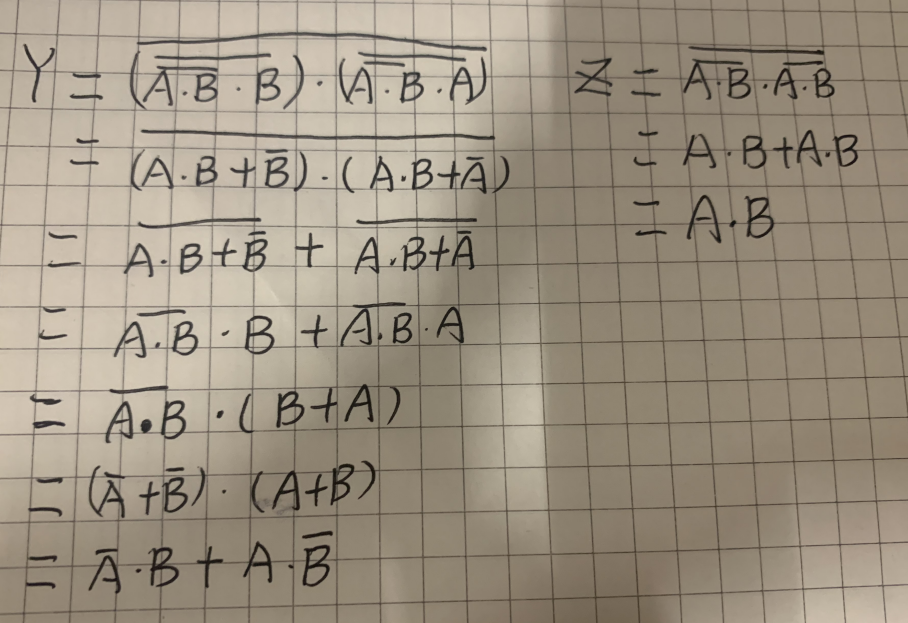 Y = \overline{(\overline{\overline{A·B}·B})·(\overline{\overline{A·B}·A})}
= \overline{(A·B+\overline{B})·(A·B+\overline{A})}
= \overline{A·B+\overline{B}} + \overline{A·B+\overline{A}}
= \overline{A·B}·B + \overline{A·B}·A
= \overline{A·B}·(B+A)
= (\overline{A}+\overline{B})·(A+B)
= \overline{A}·B + A·\overline{B}
Z = \overline{\overline{A·B}·\overline{A·B}}
= A·B+A·B
= A·B